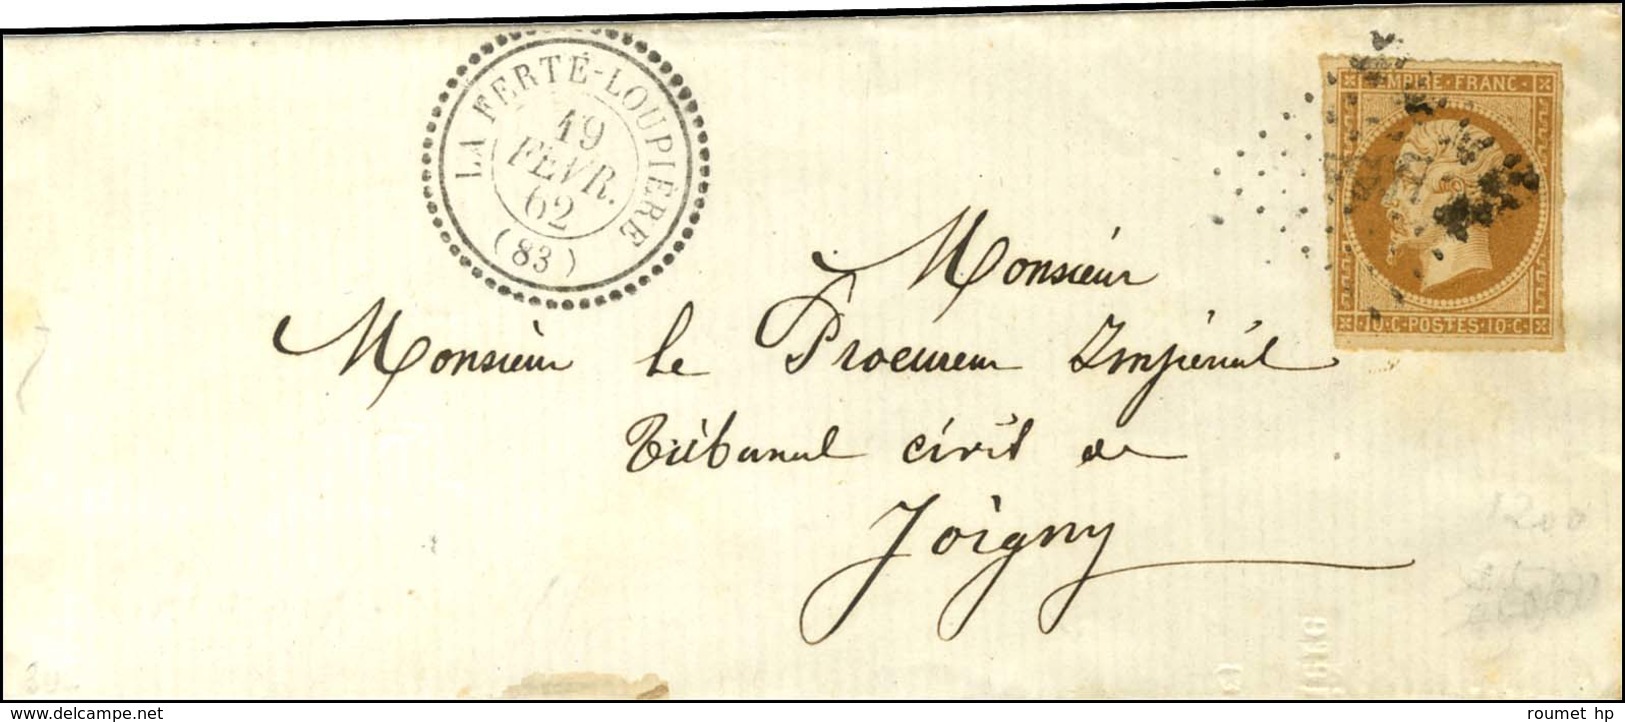 LA FERTÉ-LOUPIERE
19
FEVR.
62
(83)
EMPIRE·FRANC·
10·C·POSTES·10·C·
Monsieur
Monsieur le Procureur Impérial
Tribunal civil de
Joigny
www.delcampe.net
roumet hp